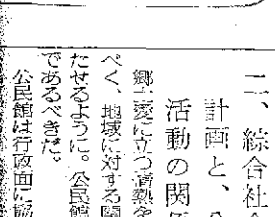 二、綜合社会
計画と、公
活動の関係
郷土愛に立つ情熱を
べく、地域に対する関
たせるように。公民館
であるべきだ。
公民館は行政面に協